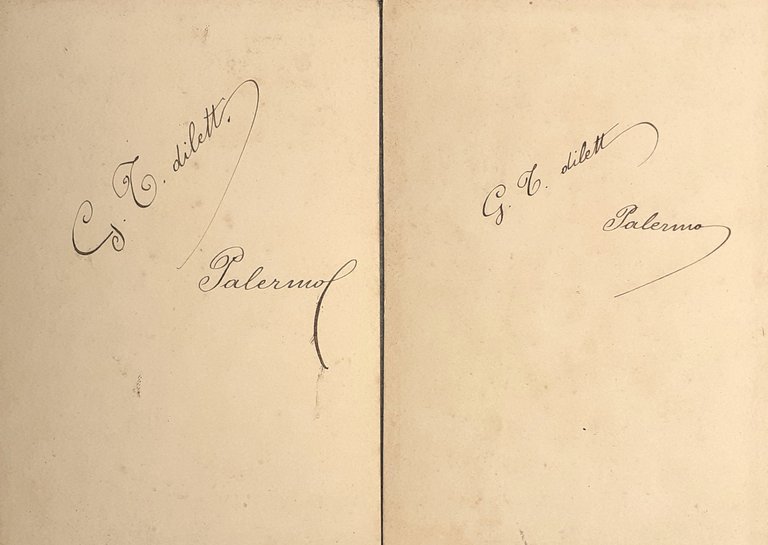 G. T. dilett.
Palermo
G. T. dilett
Palermo